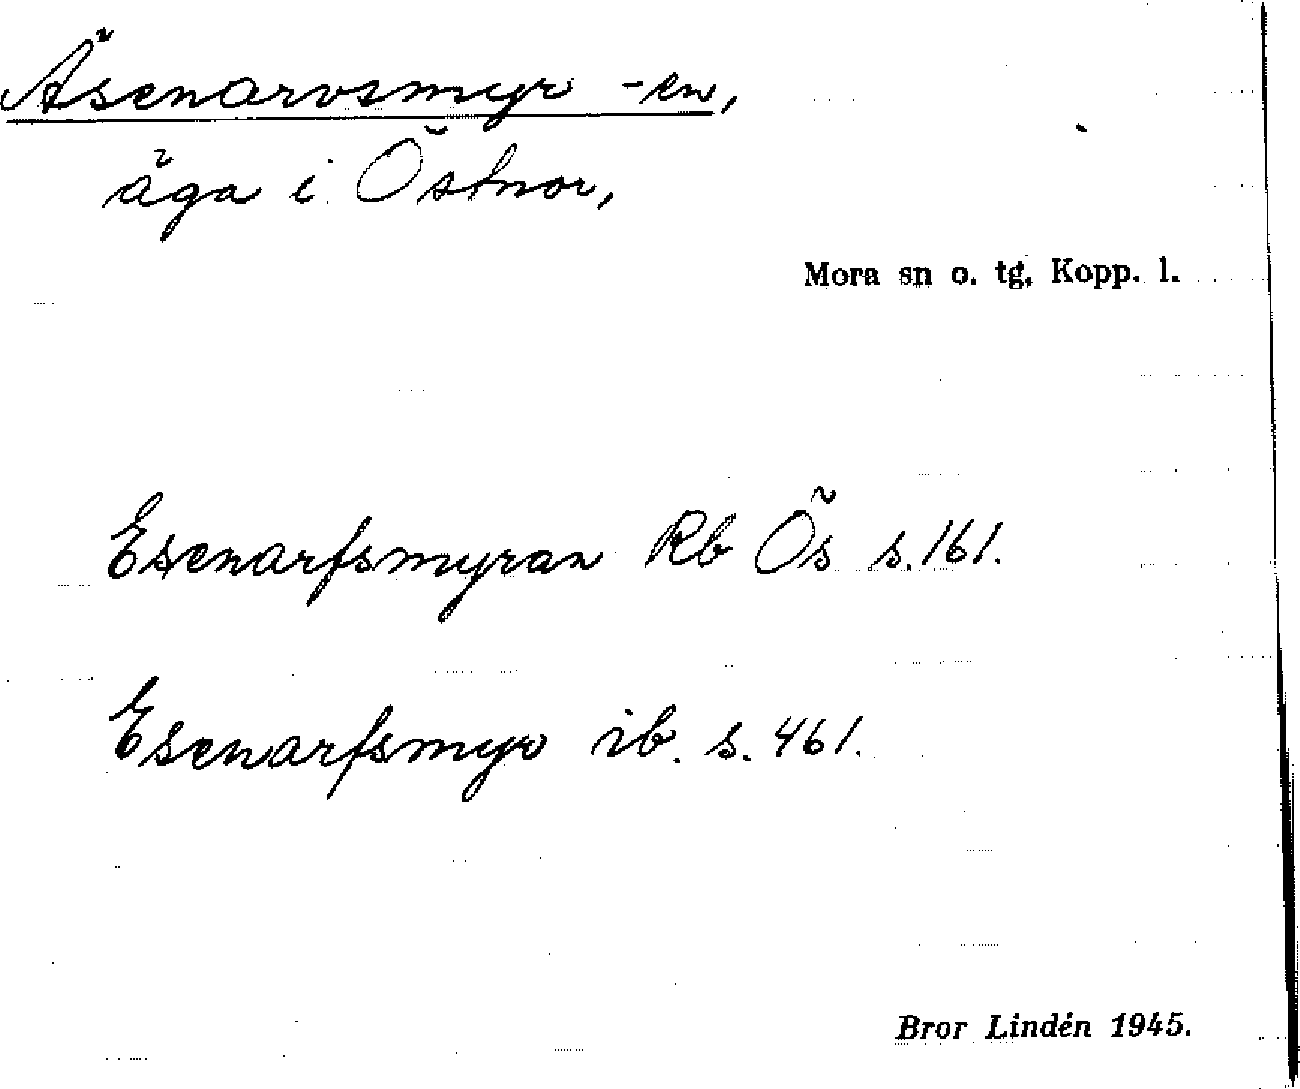 Äsenarvsmyr -en,
äga i Östnor,
Mora sn o. tg, Kopp. l.
Esenarfsmyran Rb Ös s. 161.
Esenarfsmyr ib. s. 461.
Bror Lindén 1945.